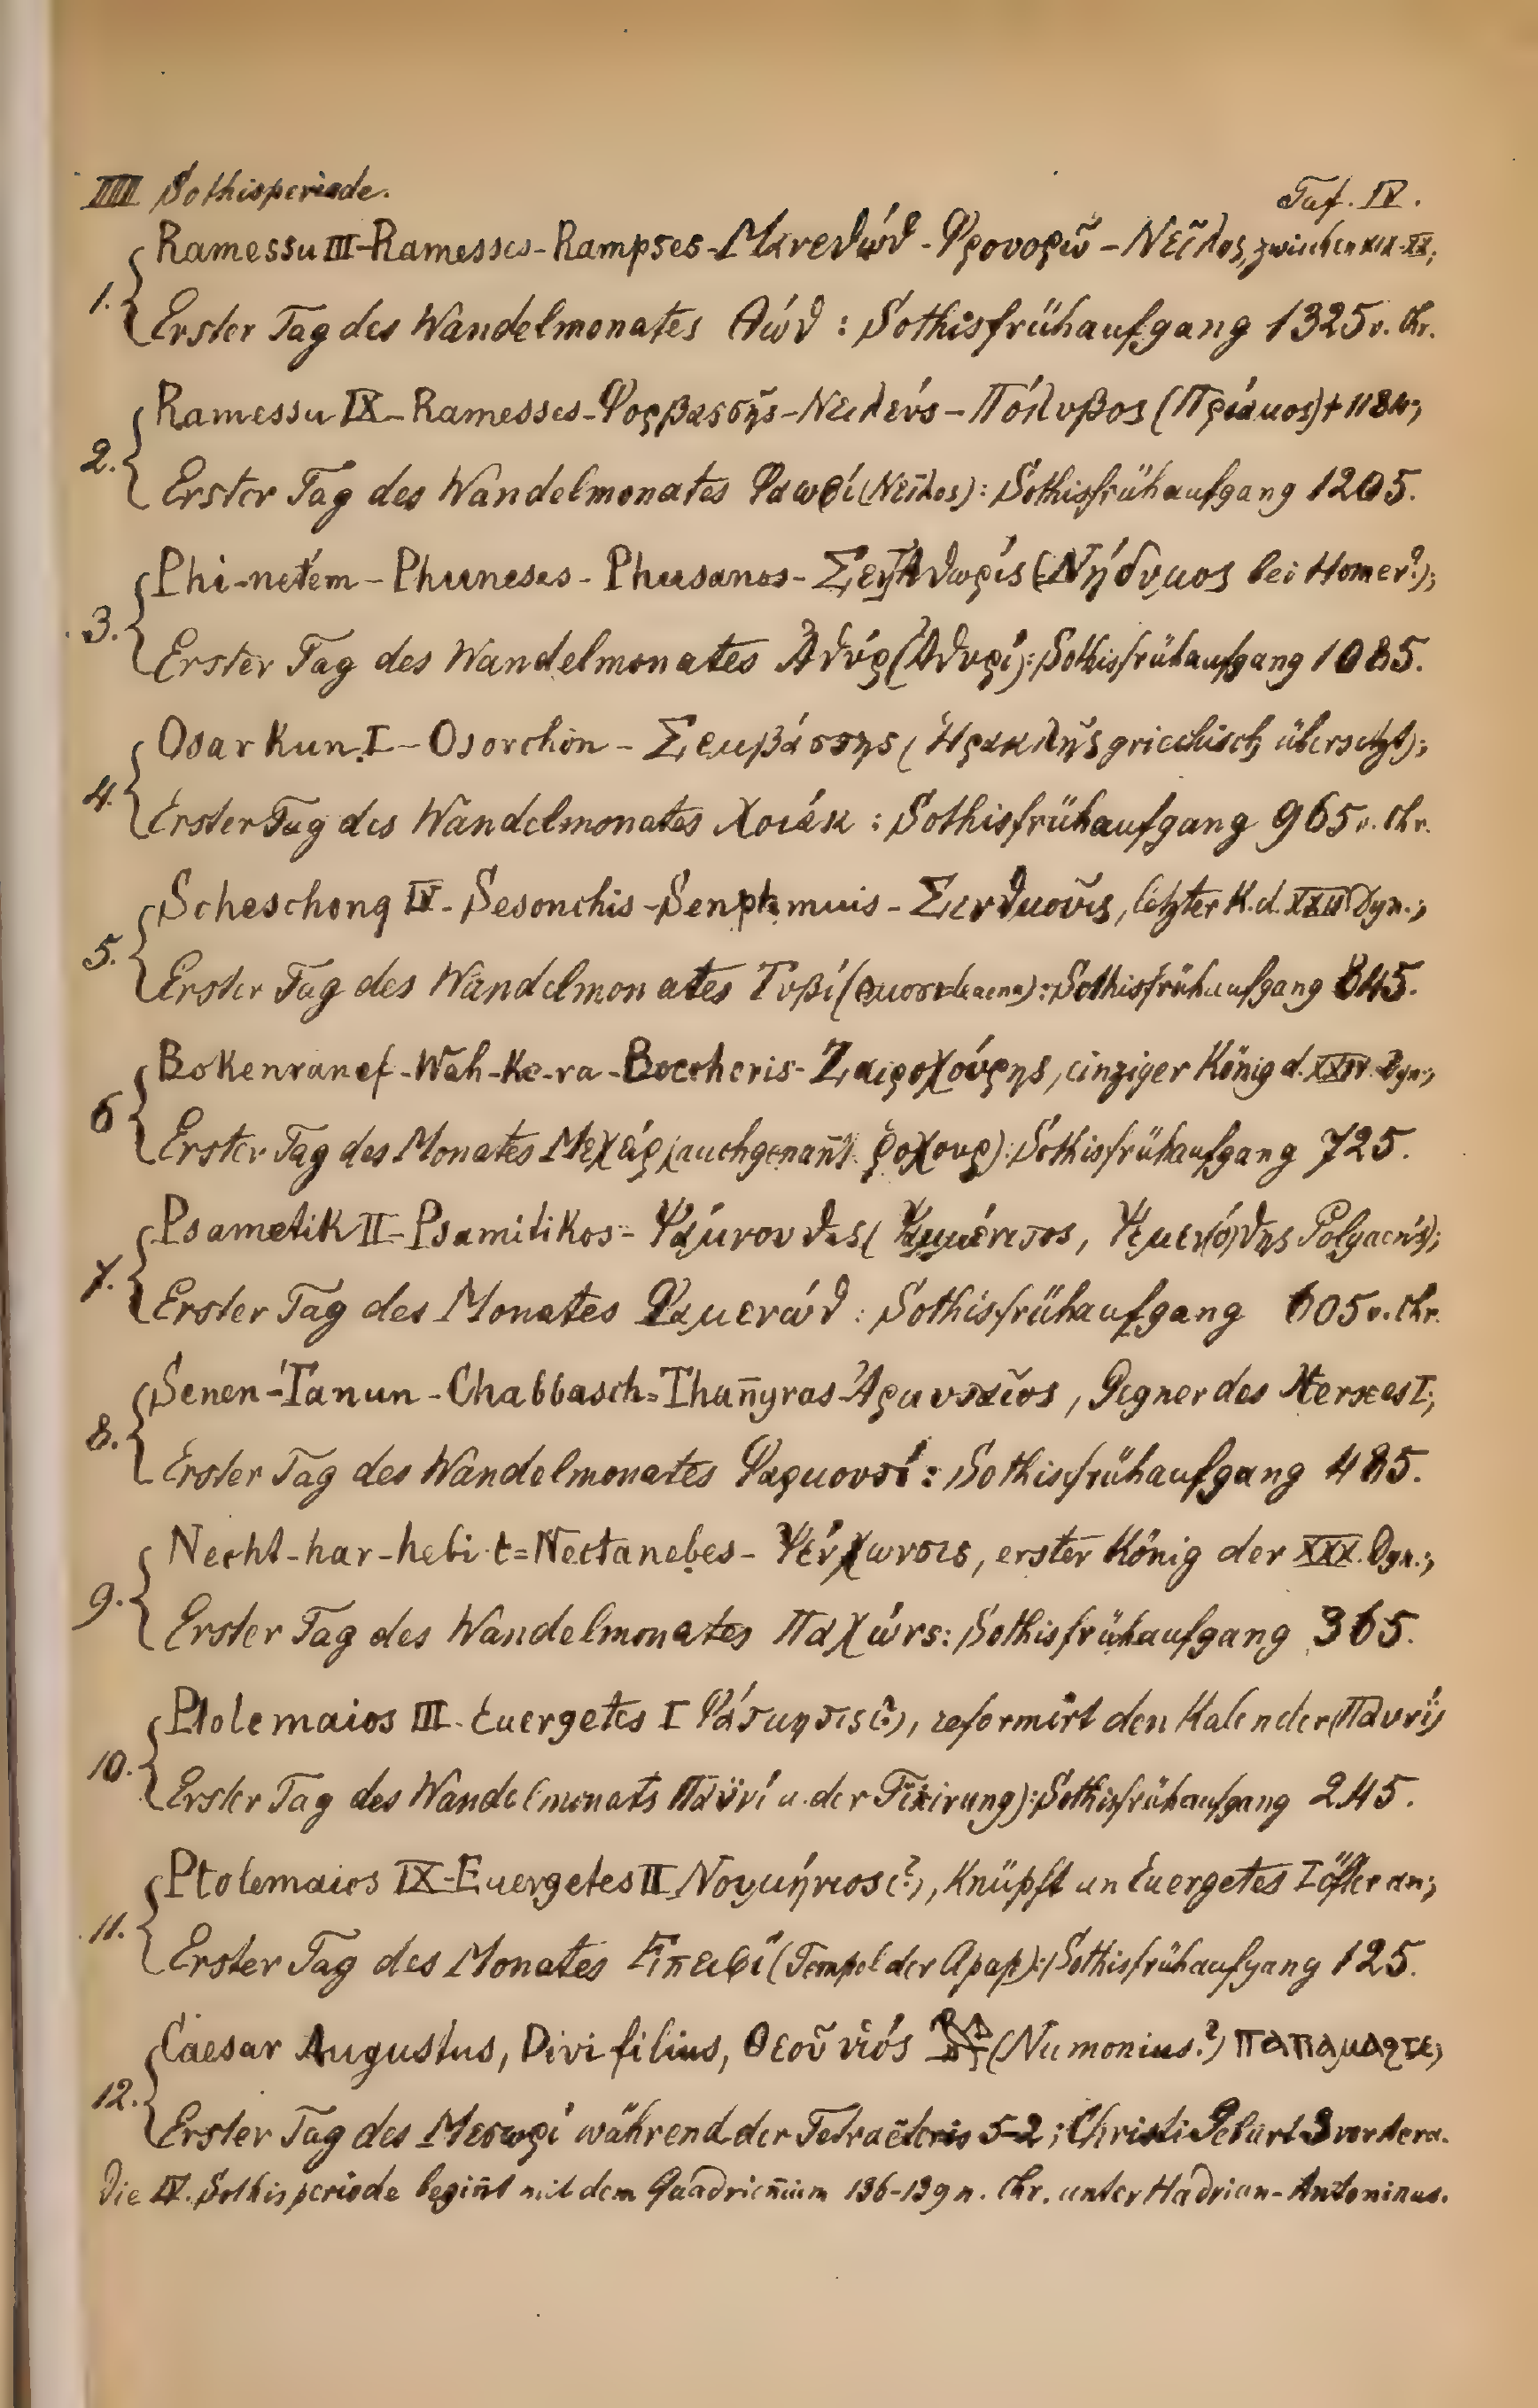 IIII Sothisperiode. Taf. IV.
Ramessu III-Ramesses-Rampses-Μενεθώθ-Φρουορῶ-Νεῖλος, zwischen XIX-XX;
1. Erster Tag des Wandelmonates Θώθ: Sothisfrühaufgang 1325 v. Chr.
Ramessu IX-Ramesses- -Νειλεύς-Πόλυβος (Πρίαμος) † 1184;
2. Erster Tag des Wandelmonates Φαωφί (Νεῖλος): Sothisfrühaufgang 1205.
Phi-netem-Phuneses-Phusanos- (Νήδυμος bei Homer?);
3. Erster Tag des Wandelmonates Ἀθύρ (Ἀθυρί): Sothisfrühaufgang 1085.
Osarkun I-Osorchon-Σεμβάσσης (Ἡρακλῆς griechisch übersetzt);
4. Erster Tag des Wandelmonates Χοιάκ: Sothisfrühaufgang 965 v. Chr.
Scheschonq IV-Sesonchis- , letzter K. d. Dyn.;
5. Erster Tag des Wandelmonates Τυβί : Sothisfrühaufgang 845.
Bokenranef-Wah-ke-ra-Boccheris- , einziger König d. XXIV Dyn.;
6 Erster Tag des Monates Μεχάρ (auch genannt ροχουρ): Sothisfrühaufgang 725.
Psametik II-Psamitikos-Ψάμουθις ( Polyaen's);
7. Erster Tag des Monates Φαμενώθ: Sothisfrühaufgang 605 v. Chr.
Senen-Tanun-Chabbasch=Than̄yras- , Gegner des Xerxes I;
8. Erster Tag des Wandelmonates Φαρμουτί: Sothisfrühaufgang 485.
Necht-har-hebi-t=Nectanebes- , erster König der XXX. Dyn.;
9. Erster Tag des Wandelmonates Παχώνς: Sothisfrühaufgang 365.
Ptolemaios III. Euergetes I (?), reformirt den Kalender (Παϋνί)
10. Erster Tag des Wandelmonats Παϋνί u. der Fixirung): Sothisfrühaufgang 245.
Ptolemaios IX-Euergetes II Νουμήνιος (?), knüpft an Euergetes I öfter an;
11. Erster Tag des Monates Ἐπειφί (Tempel der Apap): Sothisfrühaufgang 125.
Caesar Augustus, Divi filius, Θεοῦ υἱός (Numonius?) ;
12. Erster Tag des Μεσωρί während der Tetraëteris 5-2; Christi Geburt 3 vor
Die IV. Sothisperiode begin̄t mit dem Quadrien̄ium 136-139 n. Chr. unter Hadrian-Antoninus.